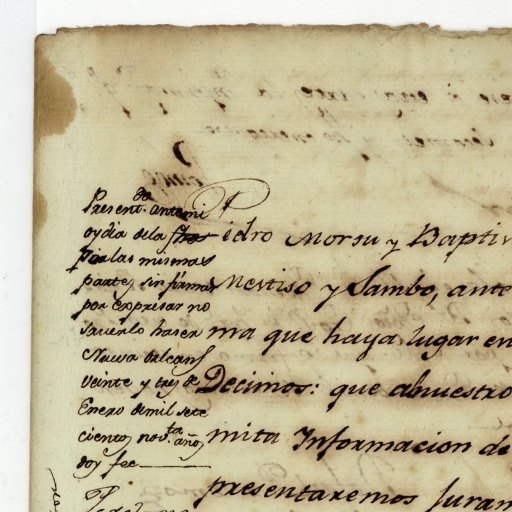 Present.do antemi
oy dia dela fha
por las mismas
partes, sin firmar
por expresar no
saverlo haser
Nueva Orleans
veinte y tres de
Enero demil sete
cientos nov.ta años
doy fee
Pedro Morsu y Baptis
Mestiso y Sambo, ante
ma que haya lugar en
Decimos: que anuestro
mita Informacion de
presentaremos Juram